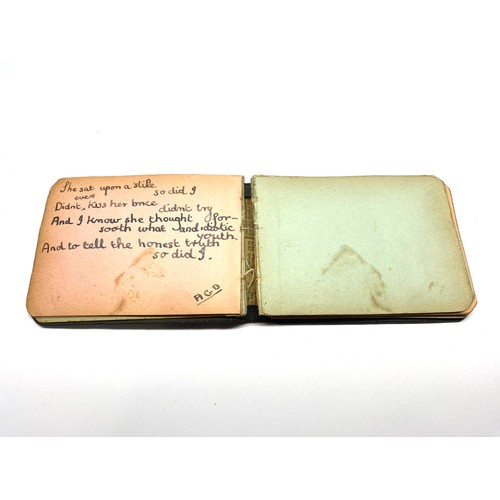 She sat upon a stile
so did I
even
Didnt, kiss her once didnt try
And I know she thought for-
sooth what an idiotic
youth.
And to tell the honest truth
so did I.
AGD